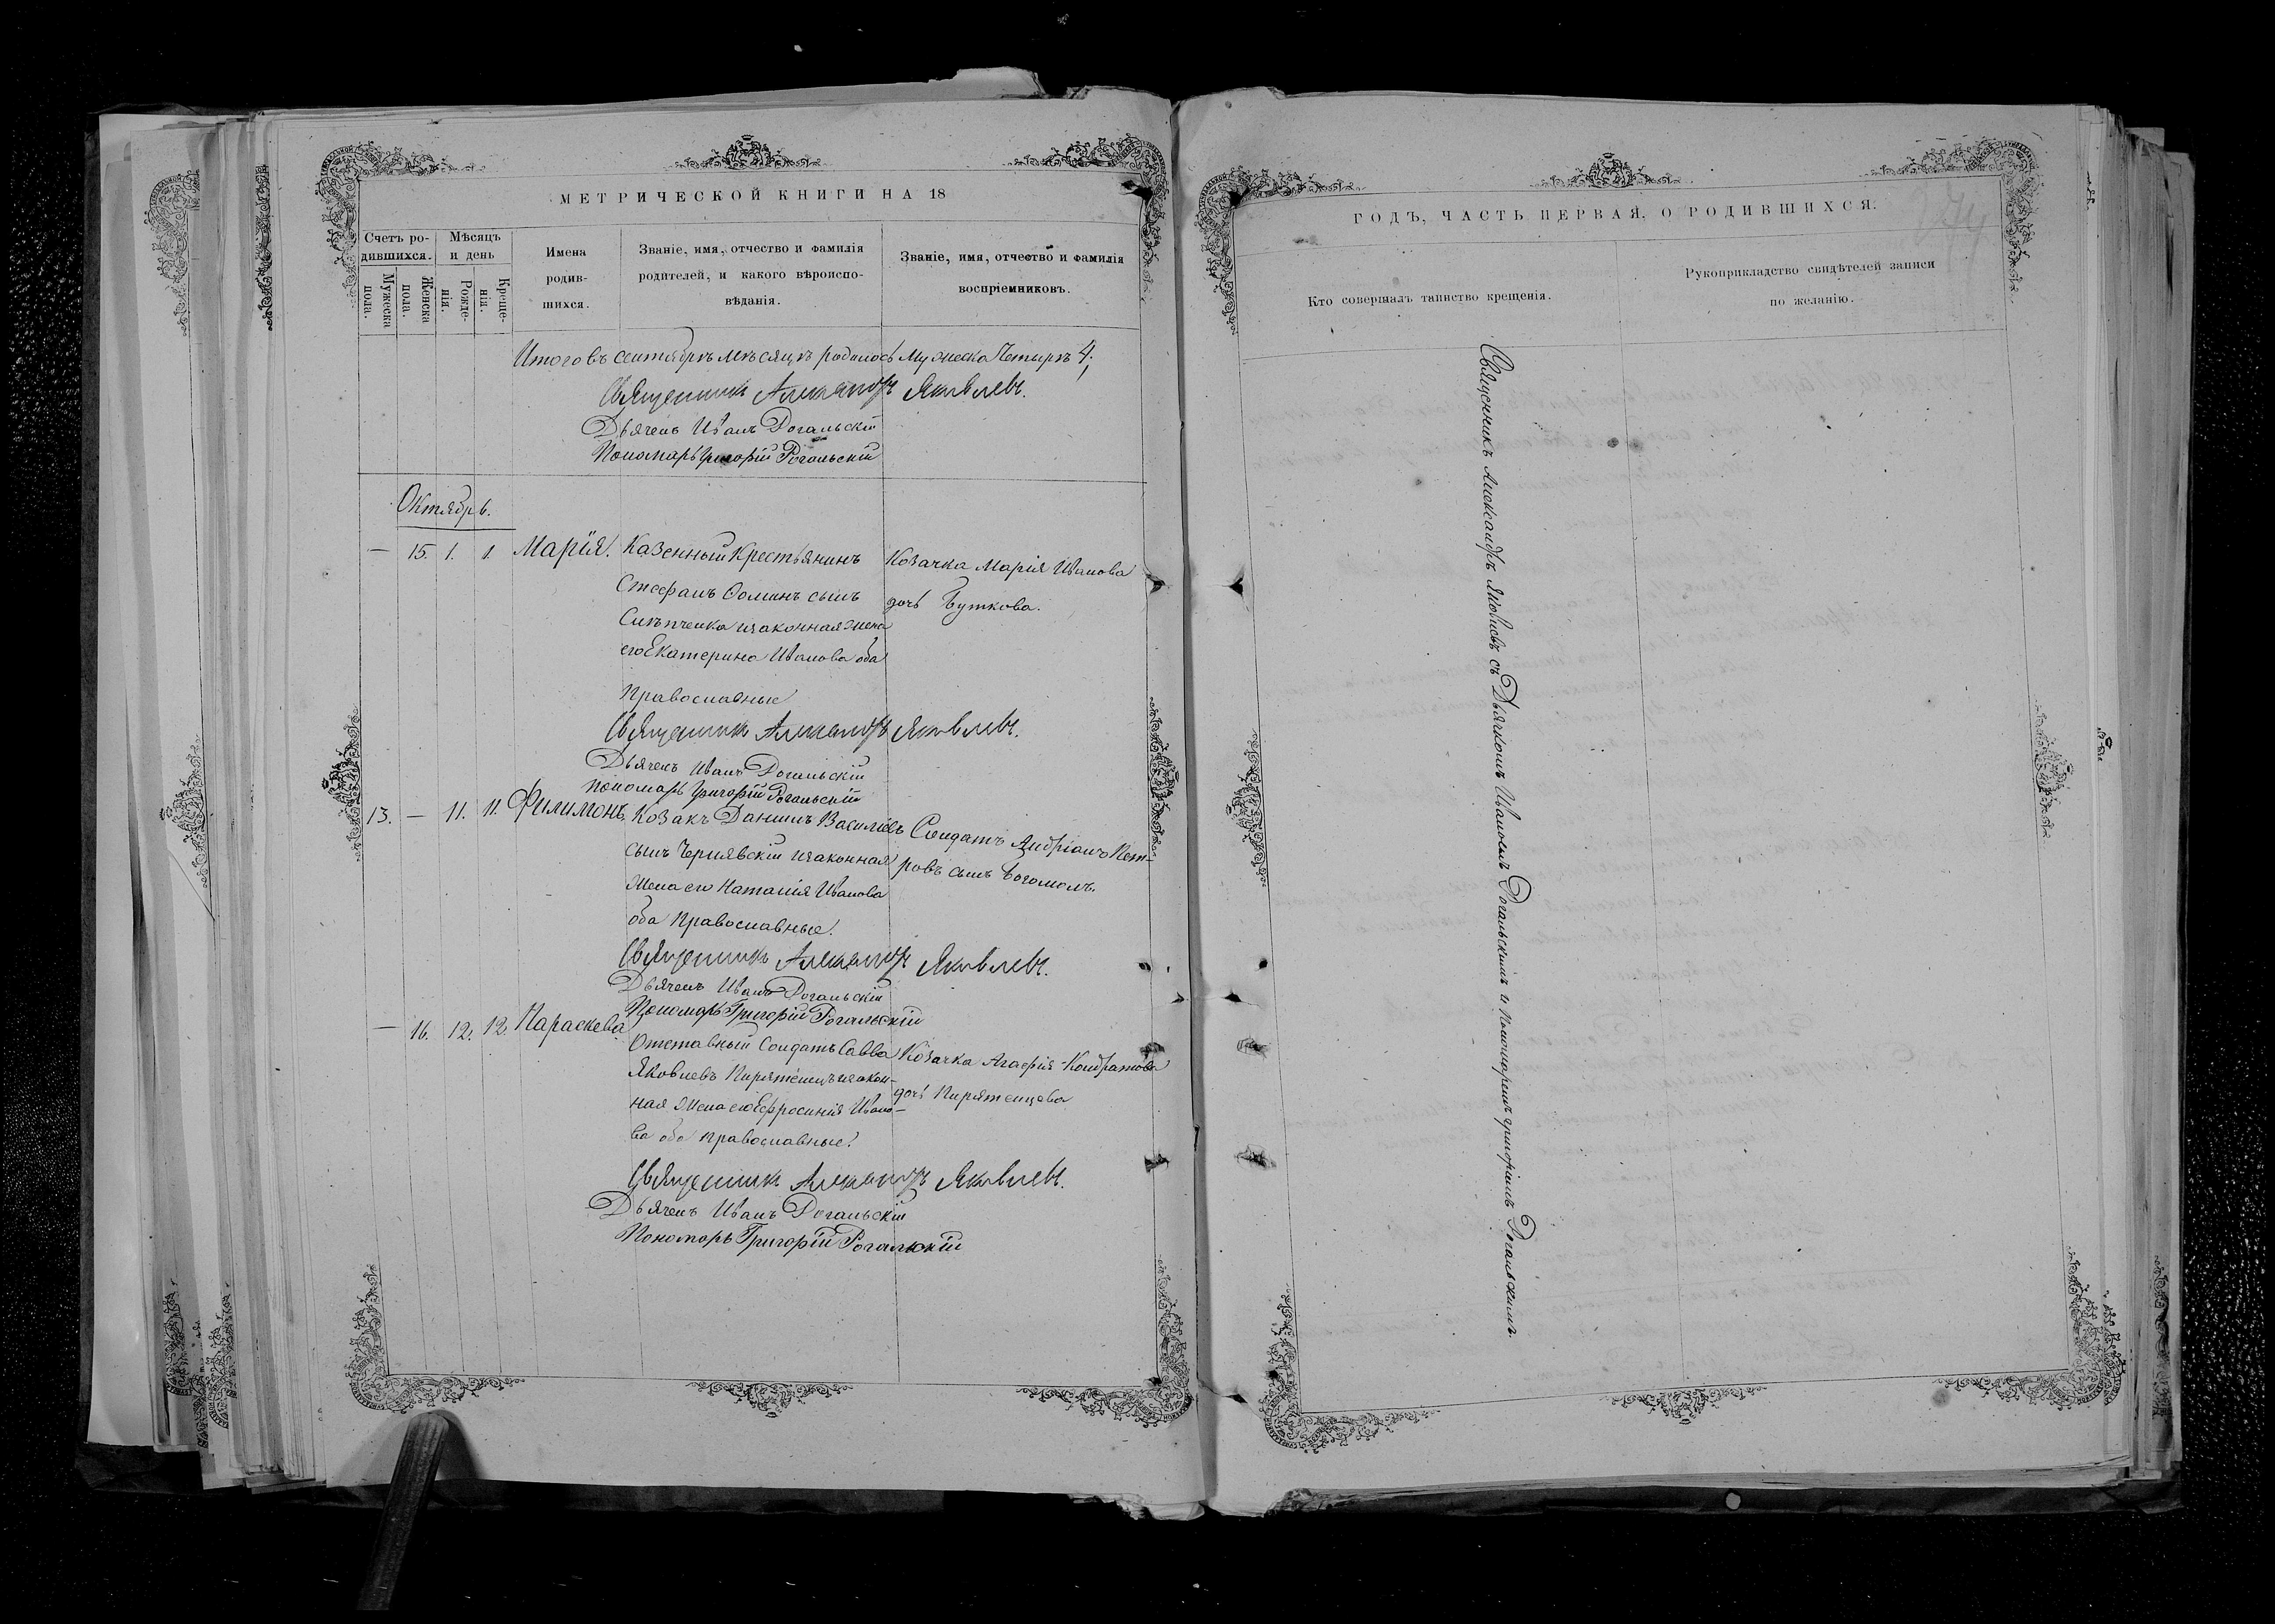 МЕТРИЧЕСКОЙ КНИГИ НА 18
Счетъ ро-
дившихся.
Мужеска
пола.
Женска
пола.
Мѣсяцъ
и день
Рожде-
нія.
Креще-
нія.
Имена
родив-
шихся.
Званіе, имя, отчество и фамилія
родителей, и какого вѣроиспо-
вѣданія.
Званіе, имя, отчество и фамилія
воспріемниковъ.
Итого въ сентябрѣ мѣсяцѣ родилось Мужеска Четыре 4;
Священникъ Александръ Яковлевъ.
Дьячекъ Иванъ Рогальскій
Пономарь Григорій Рогальскій
Октябрь.
— 15. 1. 1. Марія. Казенный Крестьянинъ
Стефанъ Фоминъ сынъ
Слѣпченко и законная жена
его Екатерина Иванова оба
Православные
Козачка Марія Иванова
дочь Буткова.
Священникъ Александръ Яковлевъ.
Дьячекъ Иванъ Рогальскій
пономарь Григорій Рогальскій
13. — 11. 11. Филимонъ. Козакъ Даніилъ Василіевъ
сынъ Чернявскій и законная
жена его Наталія Иванова
оба Православные.
Солдатъ Андріанъ Пет-
ровъ сынъ Богомолъ.
Священникъ Александръ Яковлевъ.
Дьячекъ Иванъ Рогальскій
Пономарь Григорій Рогальскій
— 16. 12. 12. Параскева
Отставный Солдатъ Савва
Яковлевъ Пирятенецъ и закон-
ная жена его Ефросинія Ивано-
ва оба православные.
Козачка Агафія Кондратова
дочь Пирятенцова
Священникъ Александръ Яковлевъ.
Дьячекъ Иванъ Рогальскій
Пономарь Григорій Рогальскій
ГОДЪ, ЧАСТЬ ПЕРВАЯ, О РОДИВШИХСЯ.
Кто совершалъ таинство крещенія.
Рукоприкладство свидѣтелей записи
по желанію.
Священникъ Александръ Яковлевъ съ Дьячкомъ Иваномъ Рогальскимъ и Пономаремъ Григоріемъ Рогальскимъ.